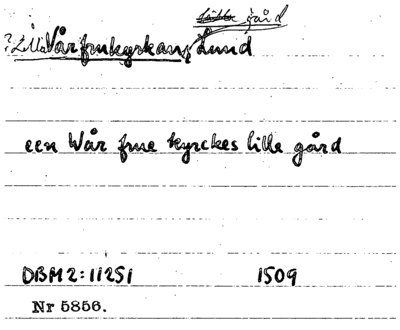 lilla gård
? Lilla Vårfrukyrkans, Lund
een Wår frue kyrckes lille gård
DBM 2:11251 1509
Nr 5856.